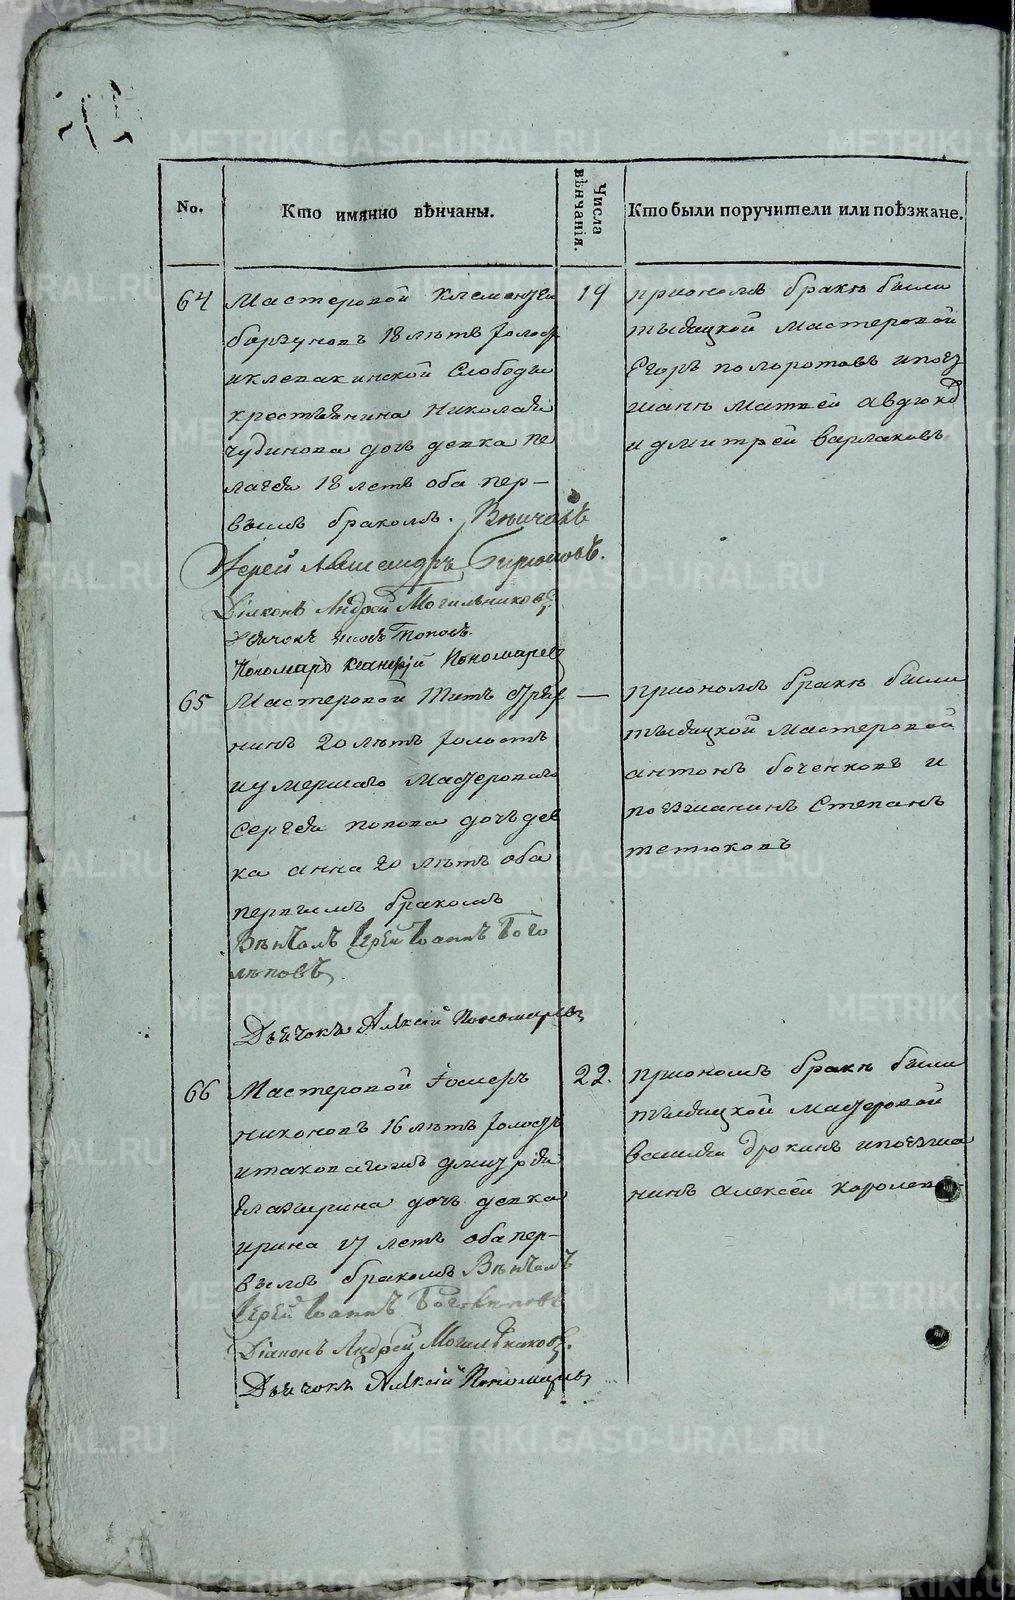 No.
Кто имянно вѣнчаны.
Числа вѣнчанія.
Кто были поручители или поѣзжане.
64
Мастеровой Клементей
борзуновъ 18 лѣтъ холостъ
иклевакинской Слободы
крестьянина Николая
чудинова дочь девка пе
лагея 18 летъ оба пер-
вымъ бракомъ. Вѣнчалъ
Іерей Александръ Бирюковъ.
Діаконъ Андрей Могильниковъ
Дьячокъ Поповъ.
Пономарь Пономаревъ
19
приономъ бракѣ были
тысяцкой мастеровой
Егоръ полоротовъ ипоез
жанѣ Матвей авдюко
идмитрей варлаковъ
65
Мастеровой Титъ
нинъ 20 лѣтъ холостъ
иумершаго мастероваго
сергея попова дочь дев
ка анна 20 лѣтъ оба
первымъ бракомъ
Вѣнчалъ Іерей Іоаннъ Бого
лѣповъ.
Дьячокъ Алексій Пономаревъ
—
приономъ бракѣ были
тысяцкой мастеровой
антонъ боченковъ и
поезжанинъ Степанъ
тетюковъ
66
Мастеровой
никоновъ 16 лѣтъ холостъ
итаковагожъ дмитрея
елазирина дочь девка
ирина 17 летъ оба пер-
вымъ бракомъ Вѣнчалъ
Іерей Іоаннъ Боголѣповъ
Діаконъ Андрей Могильниковъ.
Дьячокъ Алексій Пономаревъ
22.
приономъ бракѣ были
тысяцкой мастеровой
василей дрокинъ ипоезжа
нинъ алексей королевъ
METRIKI.GASO-URAL.RU